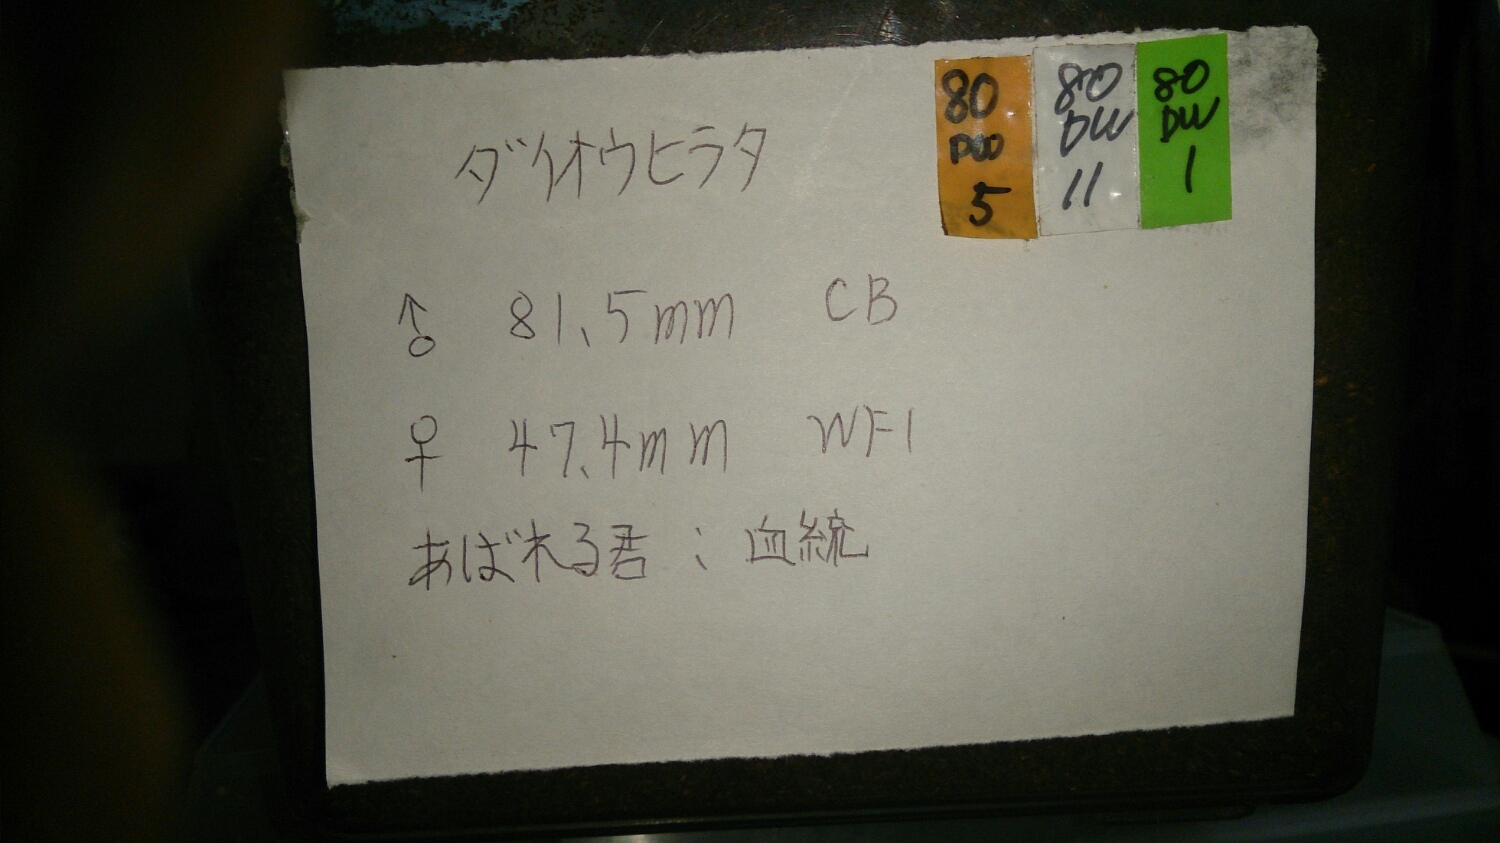 ダイオウヒラタ
80
DW
5
80
DW
11
80
DW
1
♂ 81.5mm CB
♀ 47.4mm WF1
あばれる君：血統